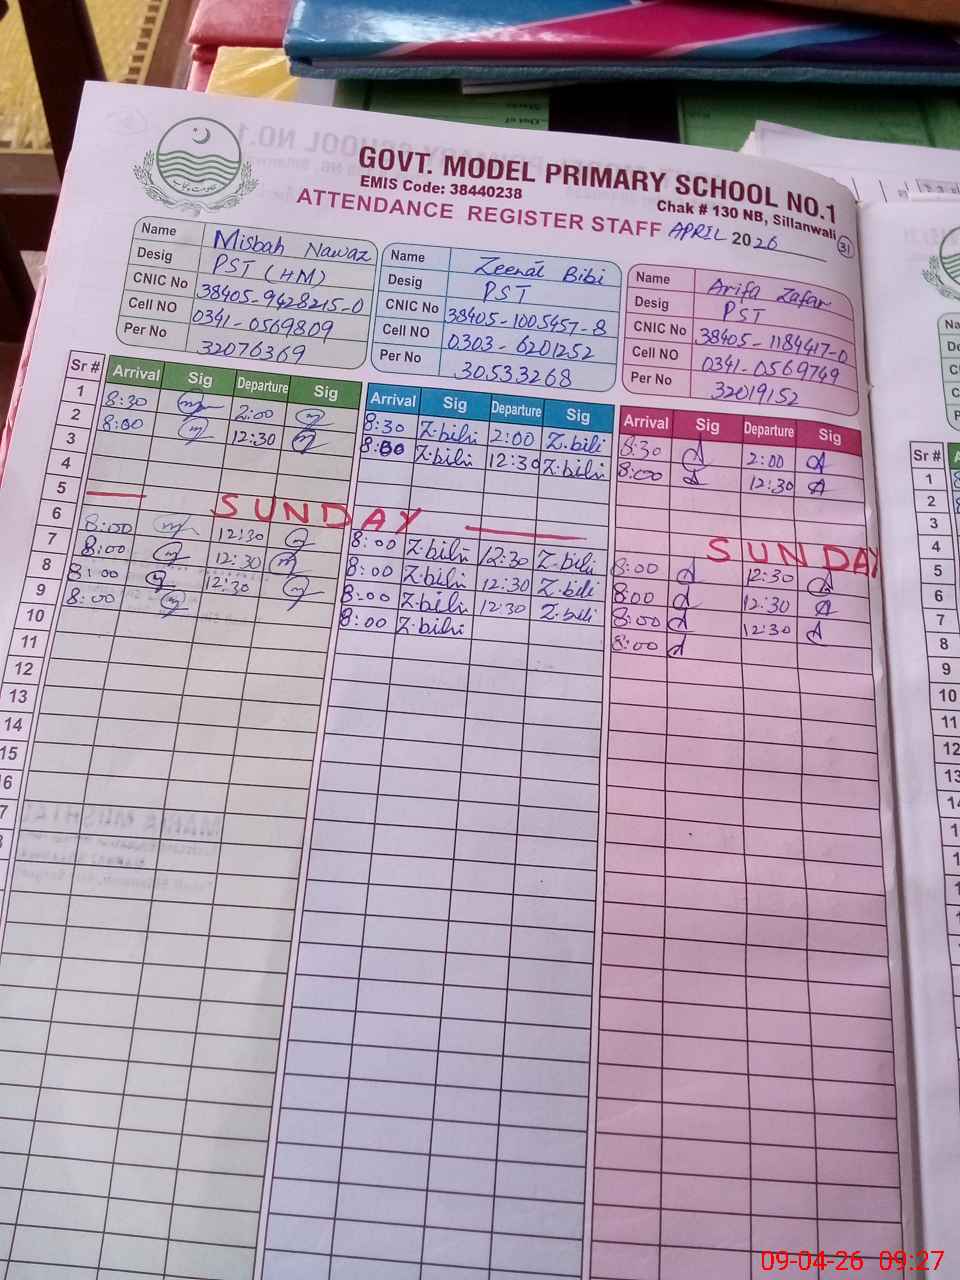 GOVT. MODEL PRIMARY SCHOOL NO.1
EMIS Code: 38440238
Chak # 130 NB, Sillanwali
ATTENDANCE REGISTER STAFF APRIL 2026
31
Name Misbah Nawaz
Desig PST (HM)
CNIC No 38405-9428215-0
Cell NO 0341-0569809
Per No 32076369
Name Zeenat Bibi
Desig PST
CNIC No 38405-1005457-8
Cell NO 0303-6201252
Per No 30533268
Name Arifa Zafar
Desig PST
CNIC No 38405-1184417-0
Cell NO 0341-0569769
Per No 32019152
Sr # Arrival Sig Departure Sig Arrival Sig Departure Sig Arrival Sig Departure Sig
1 8:30 2:00 8:30 Z.bibi 2:00 Z.bibi 8:30 2:00
2 8:00 12:30 8:00 Z.bibi 12:30 Z.bibi 8:00 12:30
3
4
5 SUNDAY SUNDAY
6 8:00 12:30 8:00 Z.bibi 12:30 Z.bibi 8:00 12:30
7 8:00 12:30 8:00 Z.bibi 12:30 Z.bibi 8:00 12:30
8 8:00 12:30 8:00 Z.bibi 12:30 Z.bibi 8:00 12:30
9 8:00 8:00 Z.bibi 8:00
10
11
12
13
14
15
Sr #
1
2
3
4
5
6
7
8
9
10
11
12
13
09-04-26 09:27